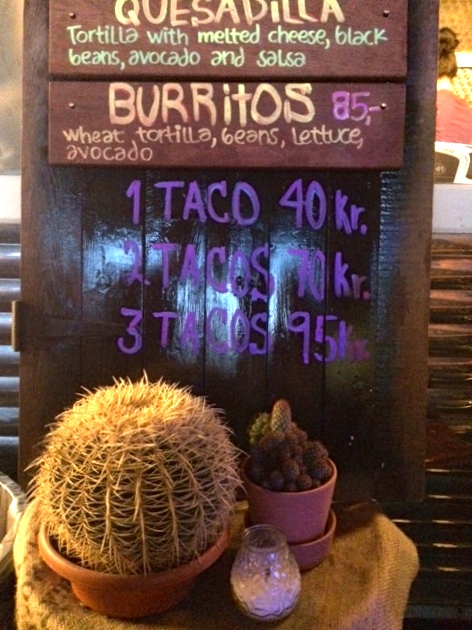 QUESADILLA
Tortilla with melted cheese, black
beans, avocado and salsa
BURRITOS 85,-
wheat tortilla, beans, lettuce,
avocado
1 TACO 40 Kr.
2 TACOS 70 Kr.
3 TACOS 95 Kr.